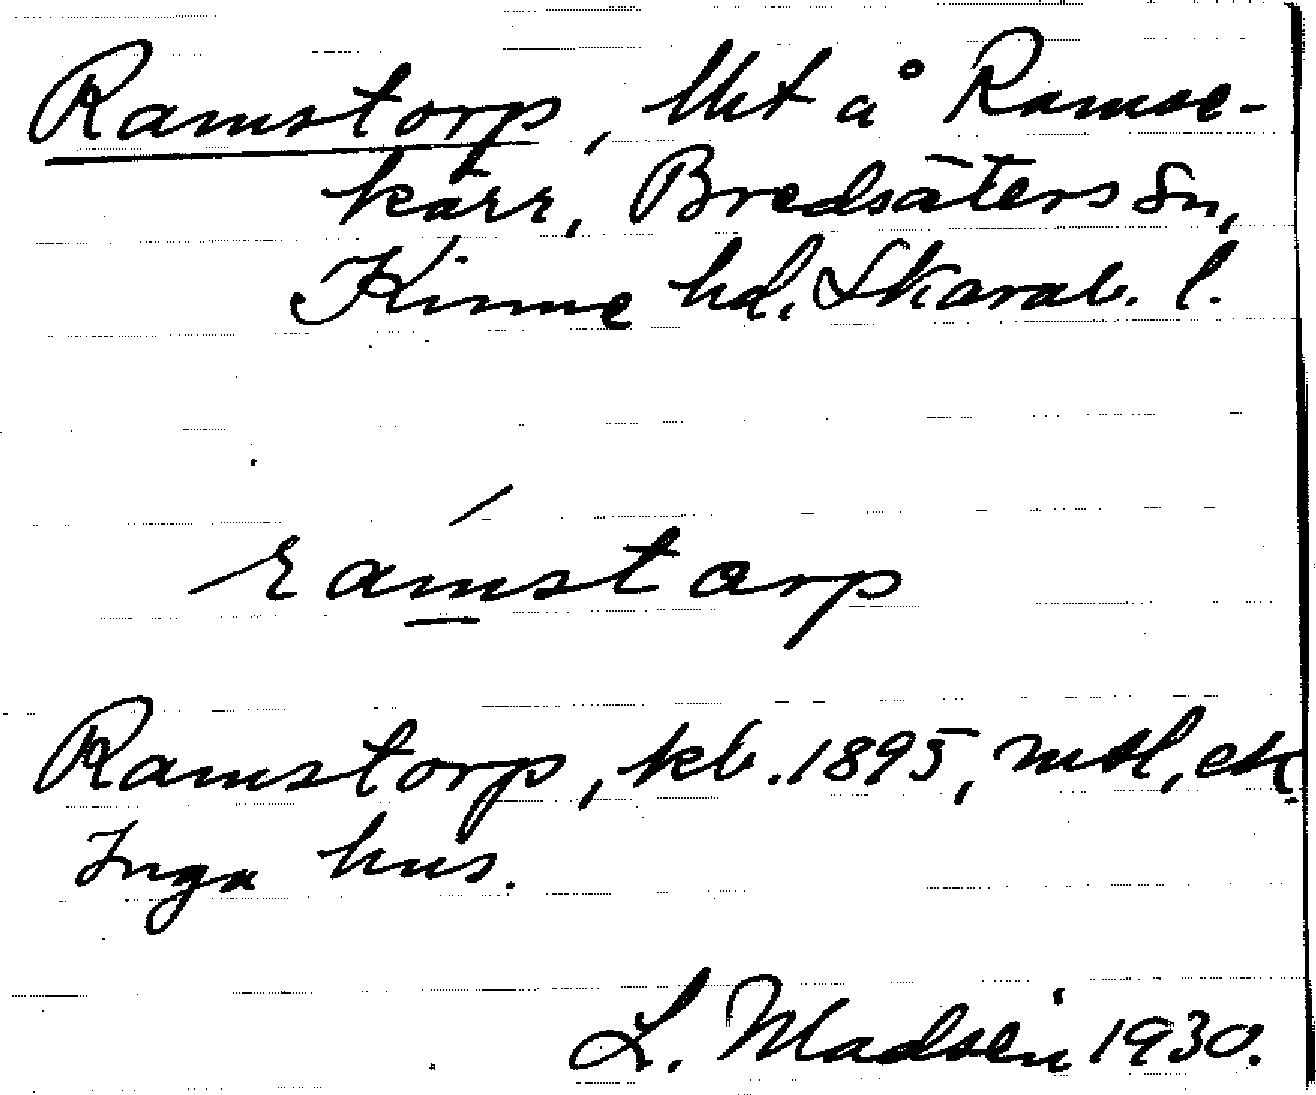 Ramstorp, lht å Ramse-
kärr, Bredsäters Sn,
Kinne hd, Skarab. l.
ramstorp
Ramstorp, kb. 1895, mtl, ek.
Inga hus.
L. Madsén 1930.